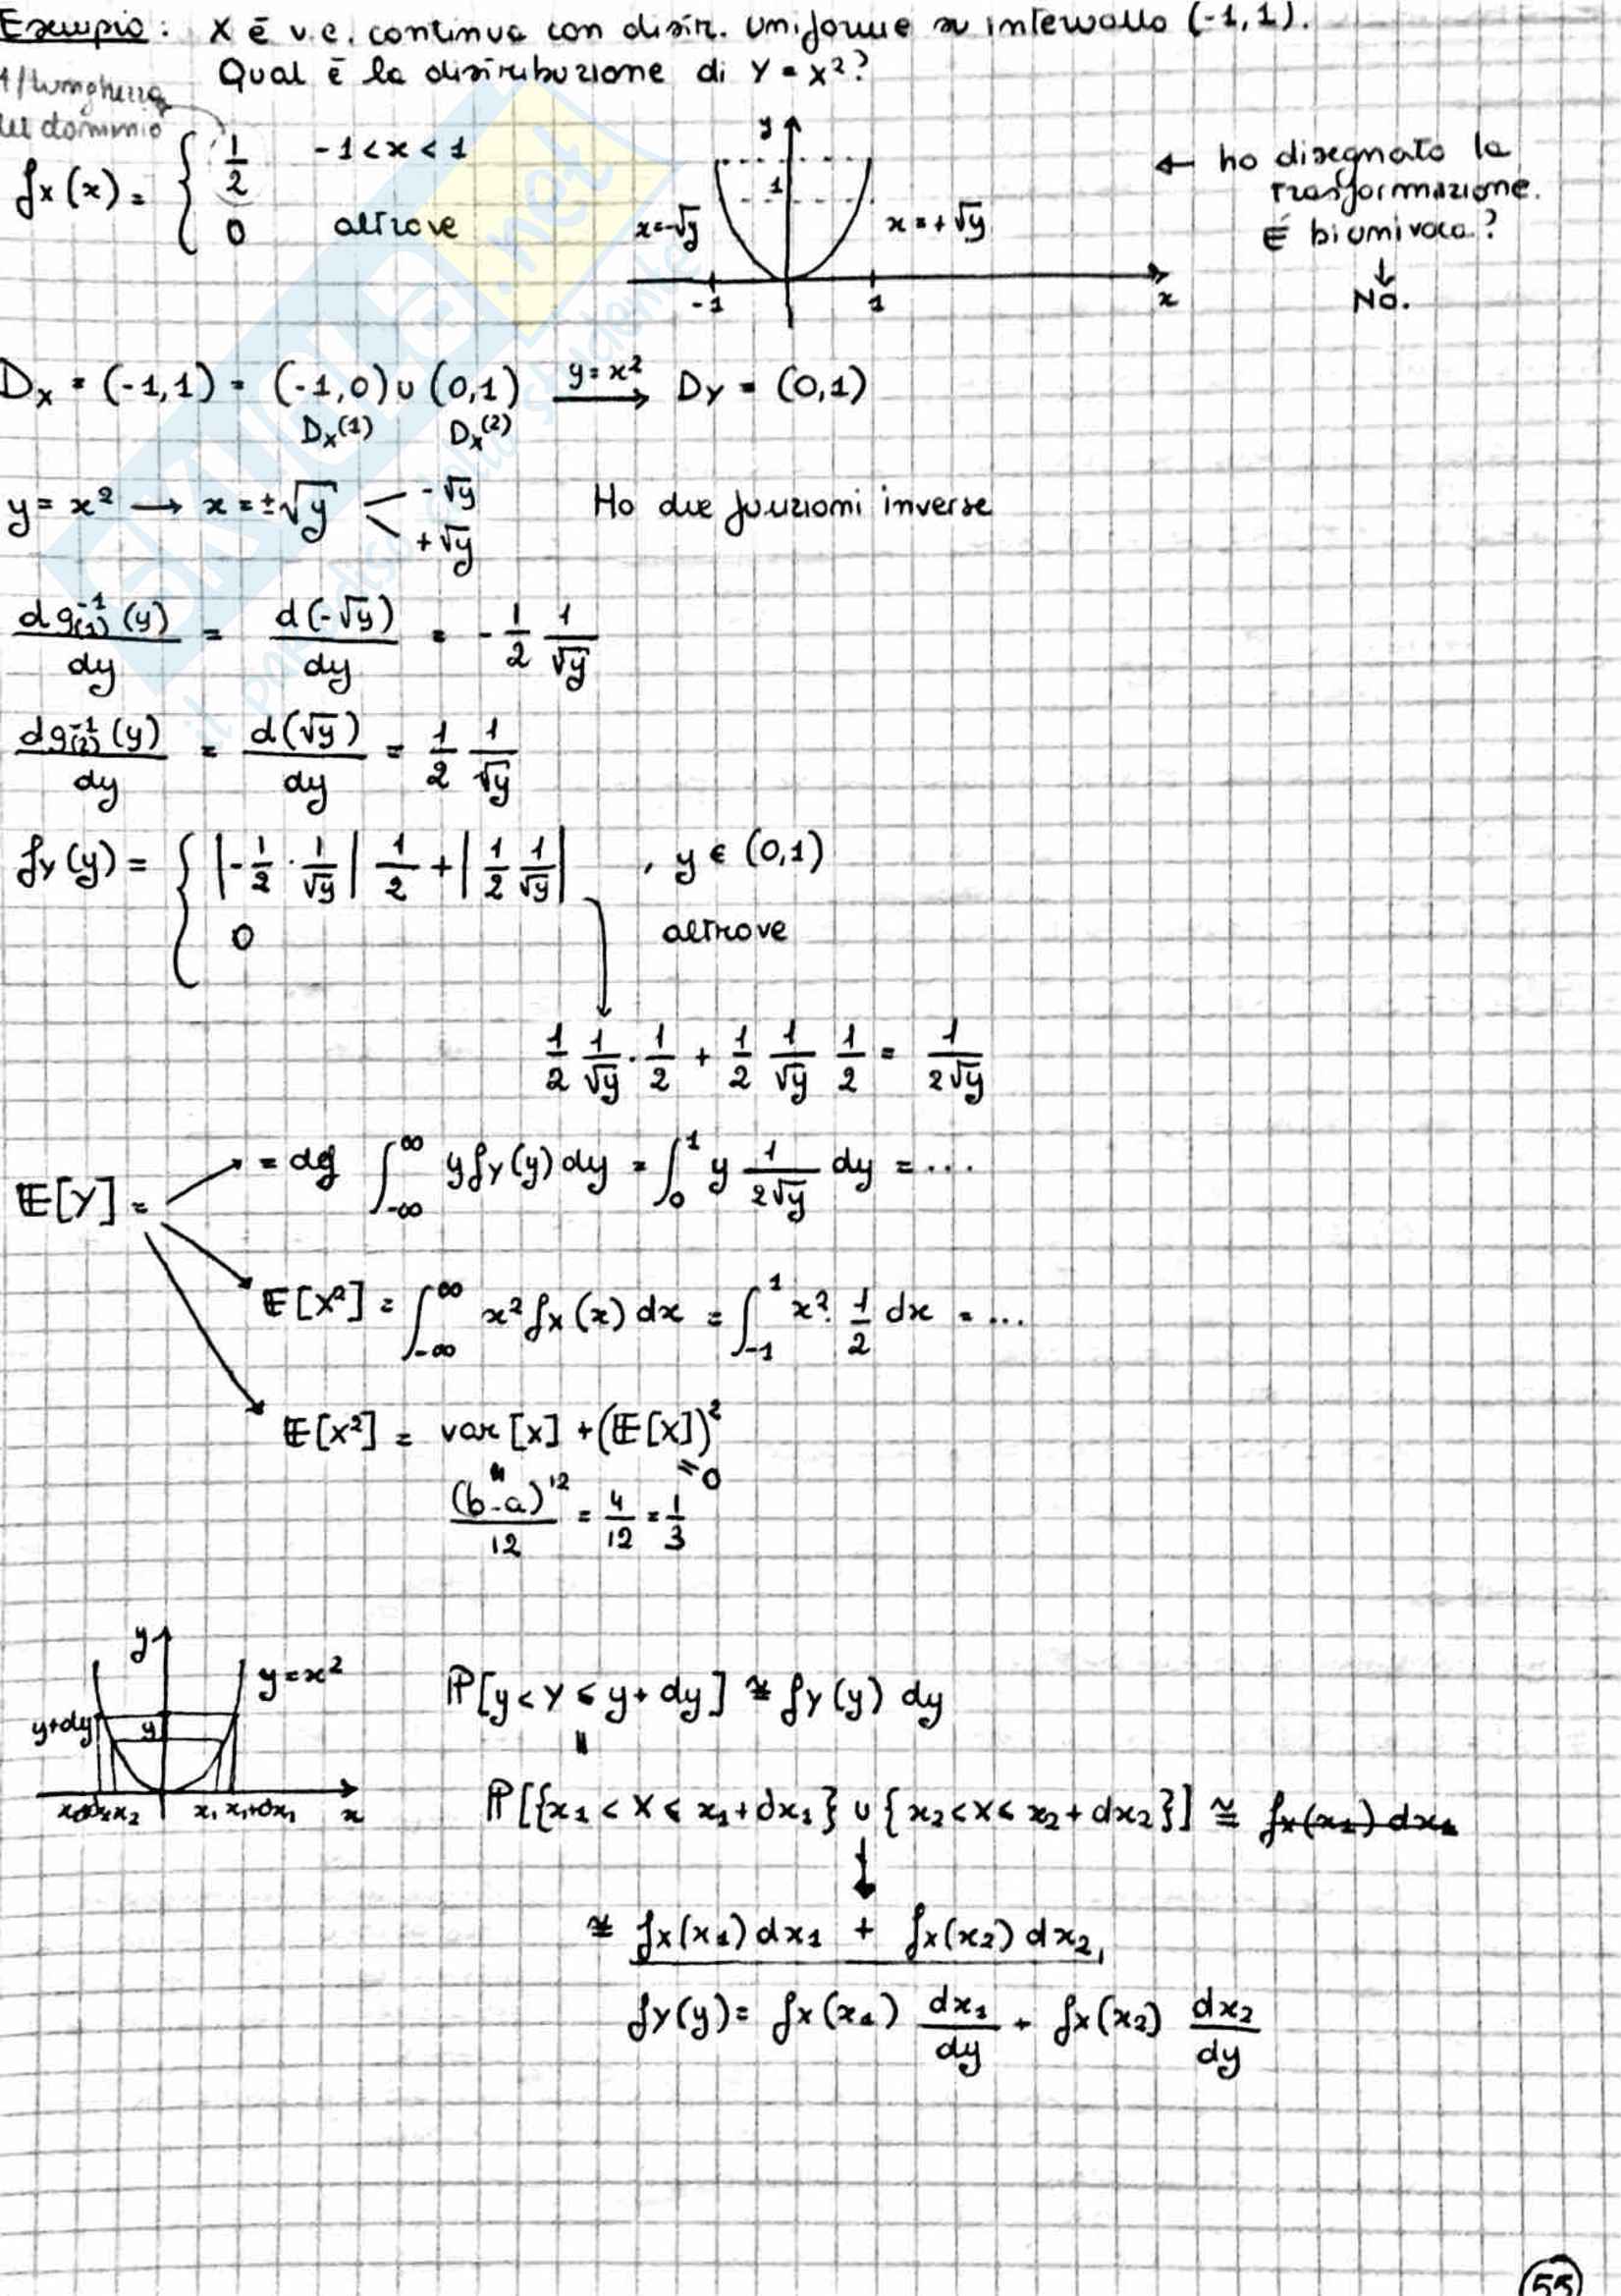 Esempio: X è v.c. continua con distr. uniforme su intervallo (-1,1).
Qual è la distribuzione di Y = X²?
1/lunghezza
del dominio
fx(x) = { 1/2   -1<x<1
0   altrove
y
1
x=-√y
x=+√y
-1   1   x
← ho disegnato la
trasformazione.
È biunivoca?
↓
No.
Dx = (-1,1) = (-1,0) ∪ (0,1) —y=x²→ Dy = (0,1)
Dx⁽¹⁾   Dx⁽²⁾
y = x² → x = ±√y < -√y
+√y
Ho due funzioni inverse
dg₍₁₎⁻¹(y)/dy = d(-√y)/dy = -1/2 1/√y
dg₍₂₎⁻¹(y)/dy = d(√y)/dy = 1/2 1/√y
fy(y) = { |-1/2 · 1/√y| 1/2 + |1/2 1/√y|   , y ∈ (0,1)
0   altrove
1/2 1/√y · 1/2 + 1/2 1/√y 1/2 = 1/(2√y)
𝔼[Y] =
= def ∫_{-∞}^{∞} y fy(y) dy = ∫_0^1 y 1/(2√y) dy = ...
𝔼[X²] = ∫_{-∞}^{∞} x² fx(x) dx = ∫_{-1}^{1} x² · 1/2 dx = ...
𝔼[X²] = var[X] + (𝔼[X])²
= 0
(b-a)¹²/12 = 4/12 = 1/3
y
y=x²
y+dy
y
x₂   x₁ x₁+dx₁   x
ℙ[y<Y≤y+dy] ≅ fy(y) dy
=
ℙ[{x₁<X≤x₁+dx₁} ∪ {x₂<X≤x₂+dx₂}] ≅ fx(x₁) dx₁
↓
≅ fx(x₁) dx₁ + fx(x₂) dx₂
fy(y) = fx(x₁) dx₁/dy + fx(x₂) dx₂/dy
55
SKUOLA.net